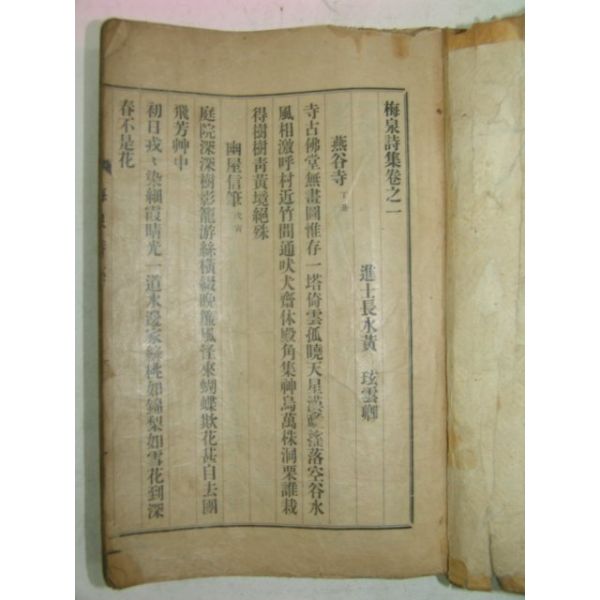 梅泉詩集卷之一
進士長水黃　玹雲卿
燕谷寺 丁丑
寺古佛堂無畫圖惟存一塔倚雲孤曉天星落空谷水
風相激呼村近竹間通吠犬齋休殿角集神烏萬株洞栗誰栽
得樹樹靑黃境絕殊
幽屋信筆 戊寅
庭院深深樹影籠游絲橫綴晚簾風怪來蝴蝶欺花甚自去團
飛芳艸中
初日戎戎染纈霞晴光一道水邊家緋桃如錦梨如雪花到深
春不是花